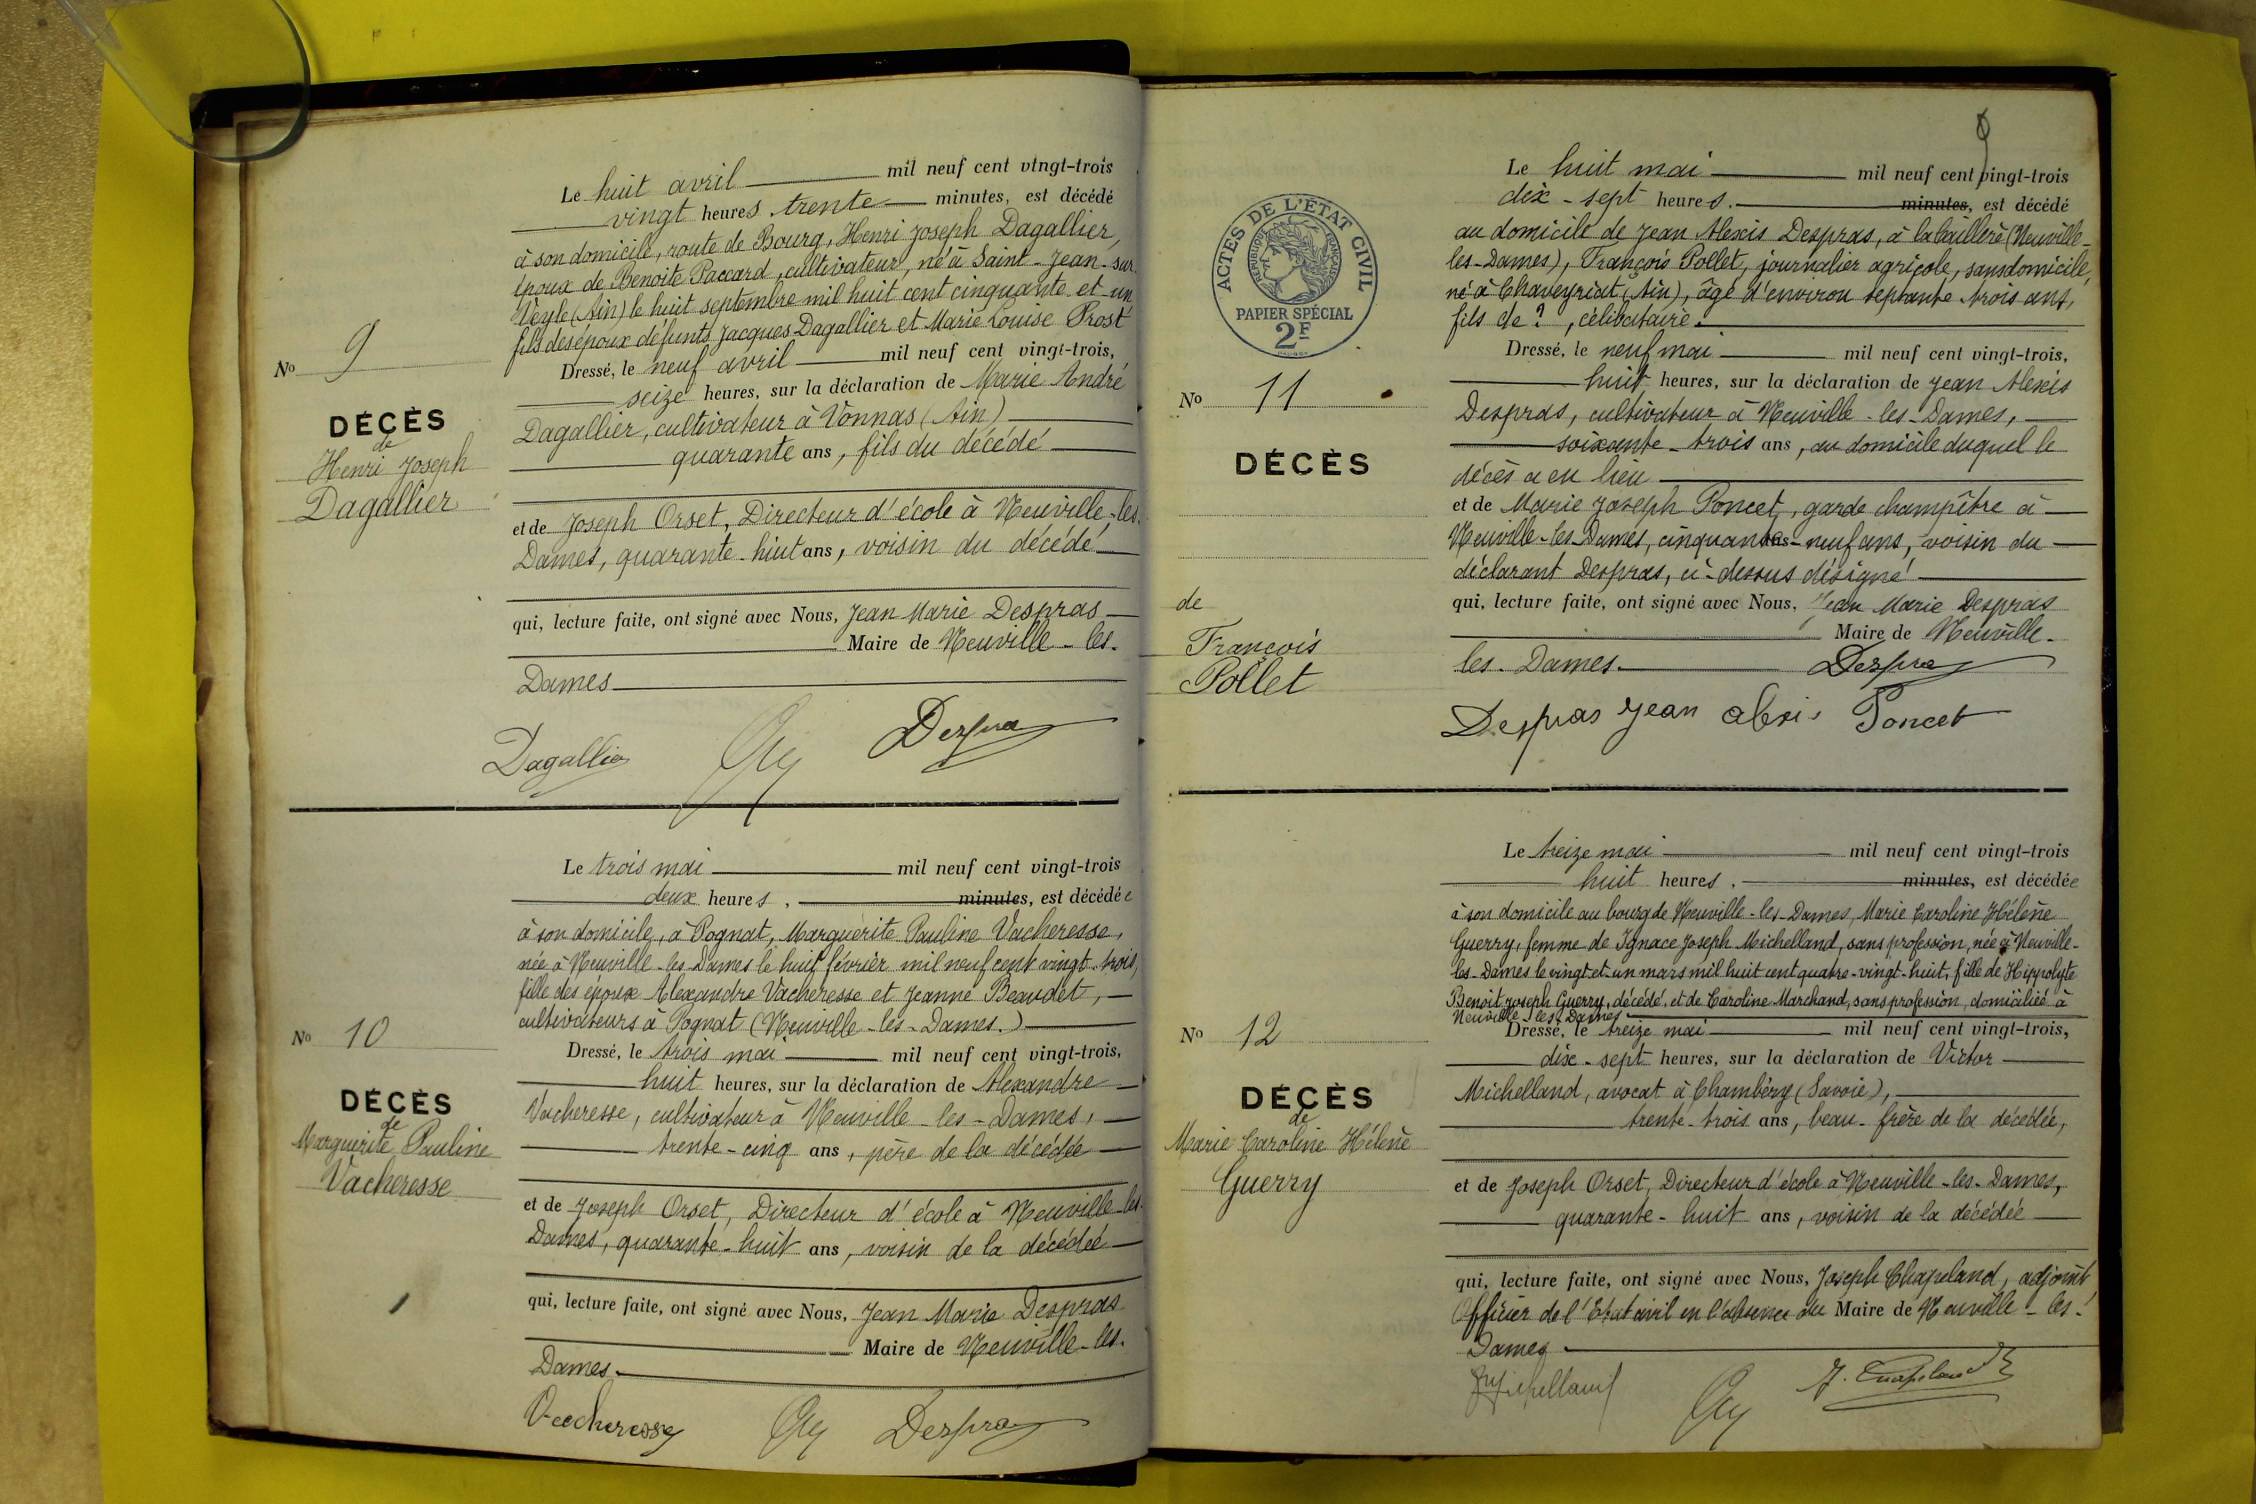 Le huit avril mil neuf cent vingt-trois
vingt heures trente minutes, est décédé
à son domicile, route de Bourg, Henri Joseph Dagallier,
époux de Benoite Paccard, cultivateur, né à Saint-Jean-sur-
Veyle (Ain) le huit septembre mil huit cent cinquante et un
fils des époux défunts Jacques Dagallier et Marie Louise Prost
No 9
DÉCÈS
de
Henri Joseph
Dagallier
Dressé, le neuf avril mil neuf cent vingt-trois,
seize heures, sur la déclaration de Marie André
Dagallier, cultivateur à Vonnas (Ain)
quarante ans, fils du décédé
et de Joseph Orset, Directeur d'école à Neuville-les-
Dames, quarante-huit ans, voisin du décédé
qui, lecture faite, ont signé avec Nous, Jean Marie Despras
Maire de Neuville-les-
Dames
Dagallier Despras
Le trois mai mil neuf cent vingt-trois
deux heures, minutes, est décédée
à son domicile, à Pognat, Marguerite Pauline Vacheresse,
née à Neuville-les-Dames le huit février mil neuf cent vingt-trois,
fille des époux Alexandre Vacheresse et Jeanne Beaudet,
cultivateurs à Pognat (Neuville-les-Dames.)
No 10
DÉCÈS
de
Marguerite Pauline
Vacheresse
Dressé, le trois mai mil neuf cent vingt-trois,
huit heures, sur la déclaration de Alexandre
Vacheresse, cultivateur à Neuville-les-Dames,
trente-cinq ans, père de la décédée
et de Joseph Orset, Directeur d'école à Neuville-les-
Dames, quarante-huit ans, voisin de la décédée
qui, lecture faite, ont signé avec Nous, Jean Marie Despras
Maire de Neuville-les-
Dames.
Vacheresse Despras
9
ACTES DE L'ÉTAT CIVIL
RÉPUBLIQUE FRANÇAISE
PAPIER SPÉCIAL
2F
Le huit mai mil neuf cent vingt-trois
dix-sept heures. minutes, est décédé
au domicile de Jean Alexis Despras, à la Caillère (Neuville-
les-Dames), François Pollet, journalier agricole, sans domicile,
né à Chaveyriat (Ain), âgé d'environ septante trois ans,
fils de ?, célibataire.
No 11
DÉCÈS
de
François
Pollet
Dressé, le neuf mai mil neuf cent vingt-trois,
huit heures, sur la déclaration de Jean Alexis
Despras, cultivateur à Neuville-les-Dames,
soixante-trois ans, au domicile duquel le
décès a eu lieu
et de Marie Joseph Poncet, garde champître à
Neuville-les-Dames, cinquante-neuf ans, voisin du
déclarant Despras, ci-dessus désigné
qui, lecture faite, ont signé avec Nous, Jean Marie Despras
Maire de Neuville-
les-Dames. Despras
Despras Jean Alexis Poncet
Le treize mai mil neuf cent vingt-trois
huit heures, minutes, est décédée
à son domicile au bourg de Neuville-les-Dames, Marie Caroline Hélène
Guerry, femme de Ignace Joseph Michelland, sans profession, née à Neuville-
les-Dames le vingt-et-un mars mil huit cent quatre-vingt-huit, fille de Hippolyte
Benoit Joseph Guerry, décédé, et de Caroline Marchand, sans profession, domiciliée à
Neuville-les-Dames
No 12
DÉCÈS
de
Marie Caroline Hélène
Guerry
Dressé, le treize mai mil neuf cent vingt-trois,
dix-sept heures, sur la déclaration de Victor
Michelland, avocat à Chambéry (Savoie),
trente-trois ans, beau-frère de la décédée,
et de Joseph Orset, Directeur d'école à Neuville-les-Dames,
quarante-huit ans, voisin de la décédée
qui, lecture faite, ont signé avec Nous, Joseph Chapeland, adjoint
Officier de l'Etat civil en l'absence du Maire de Neuville-les-
Dames
Michelland J. Chapeland